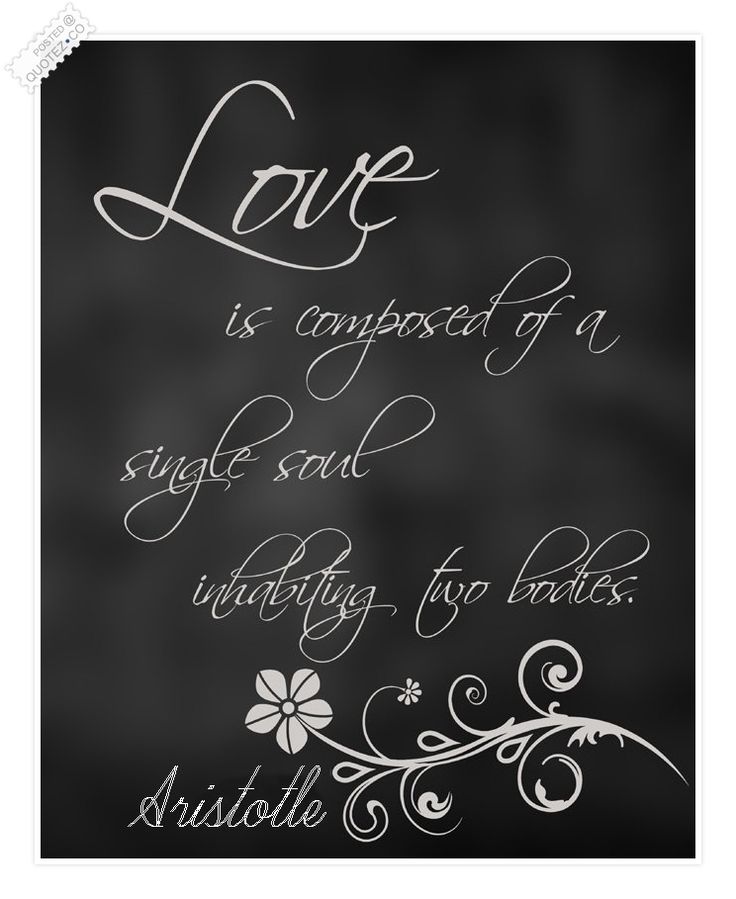 POSTED @
QUOTEZ.CO
Love
is composed of a
single soul
inhabiting two bodies.
Aristotle